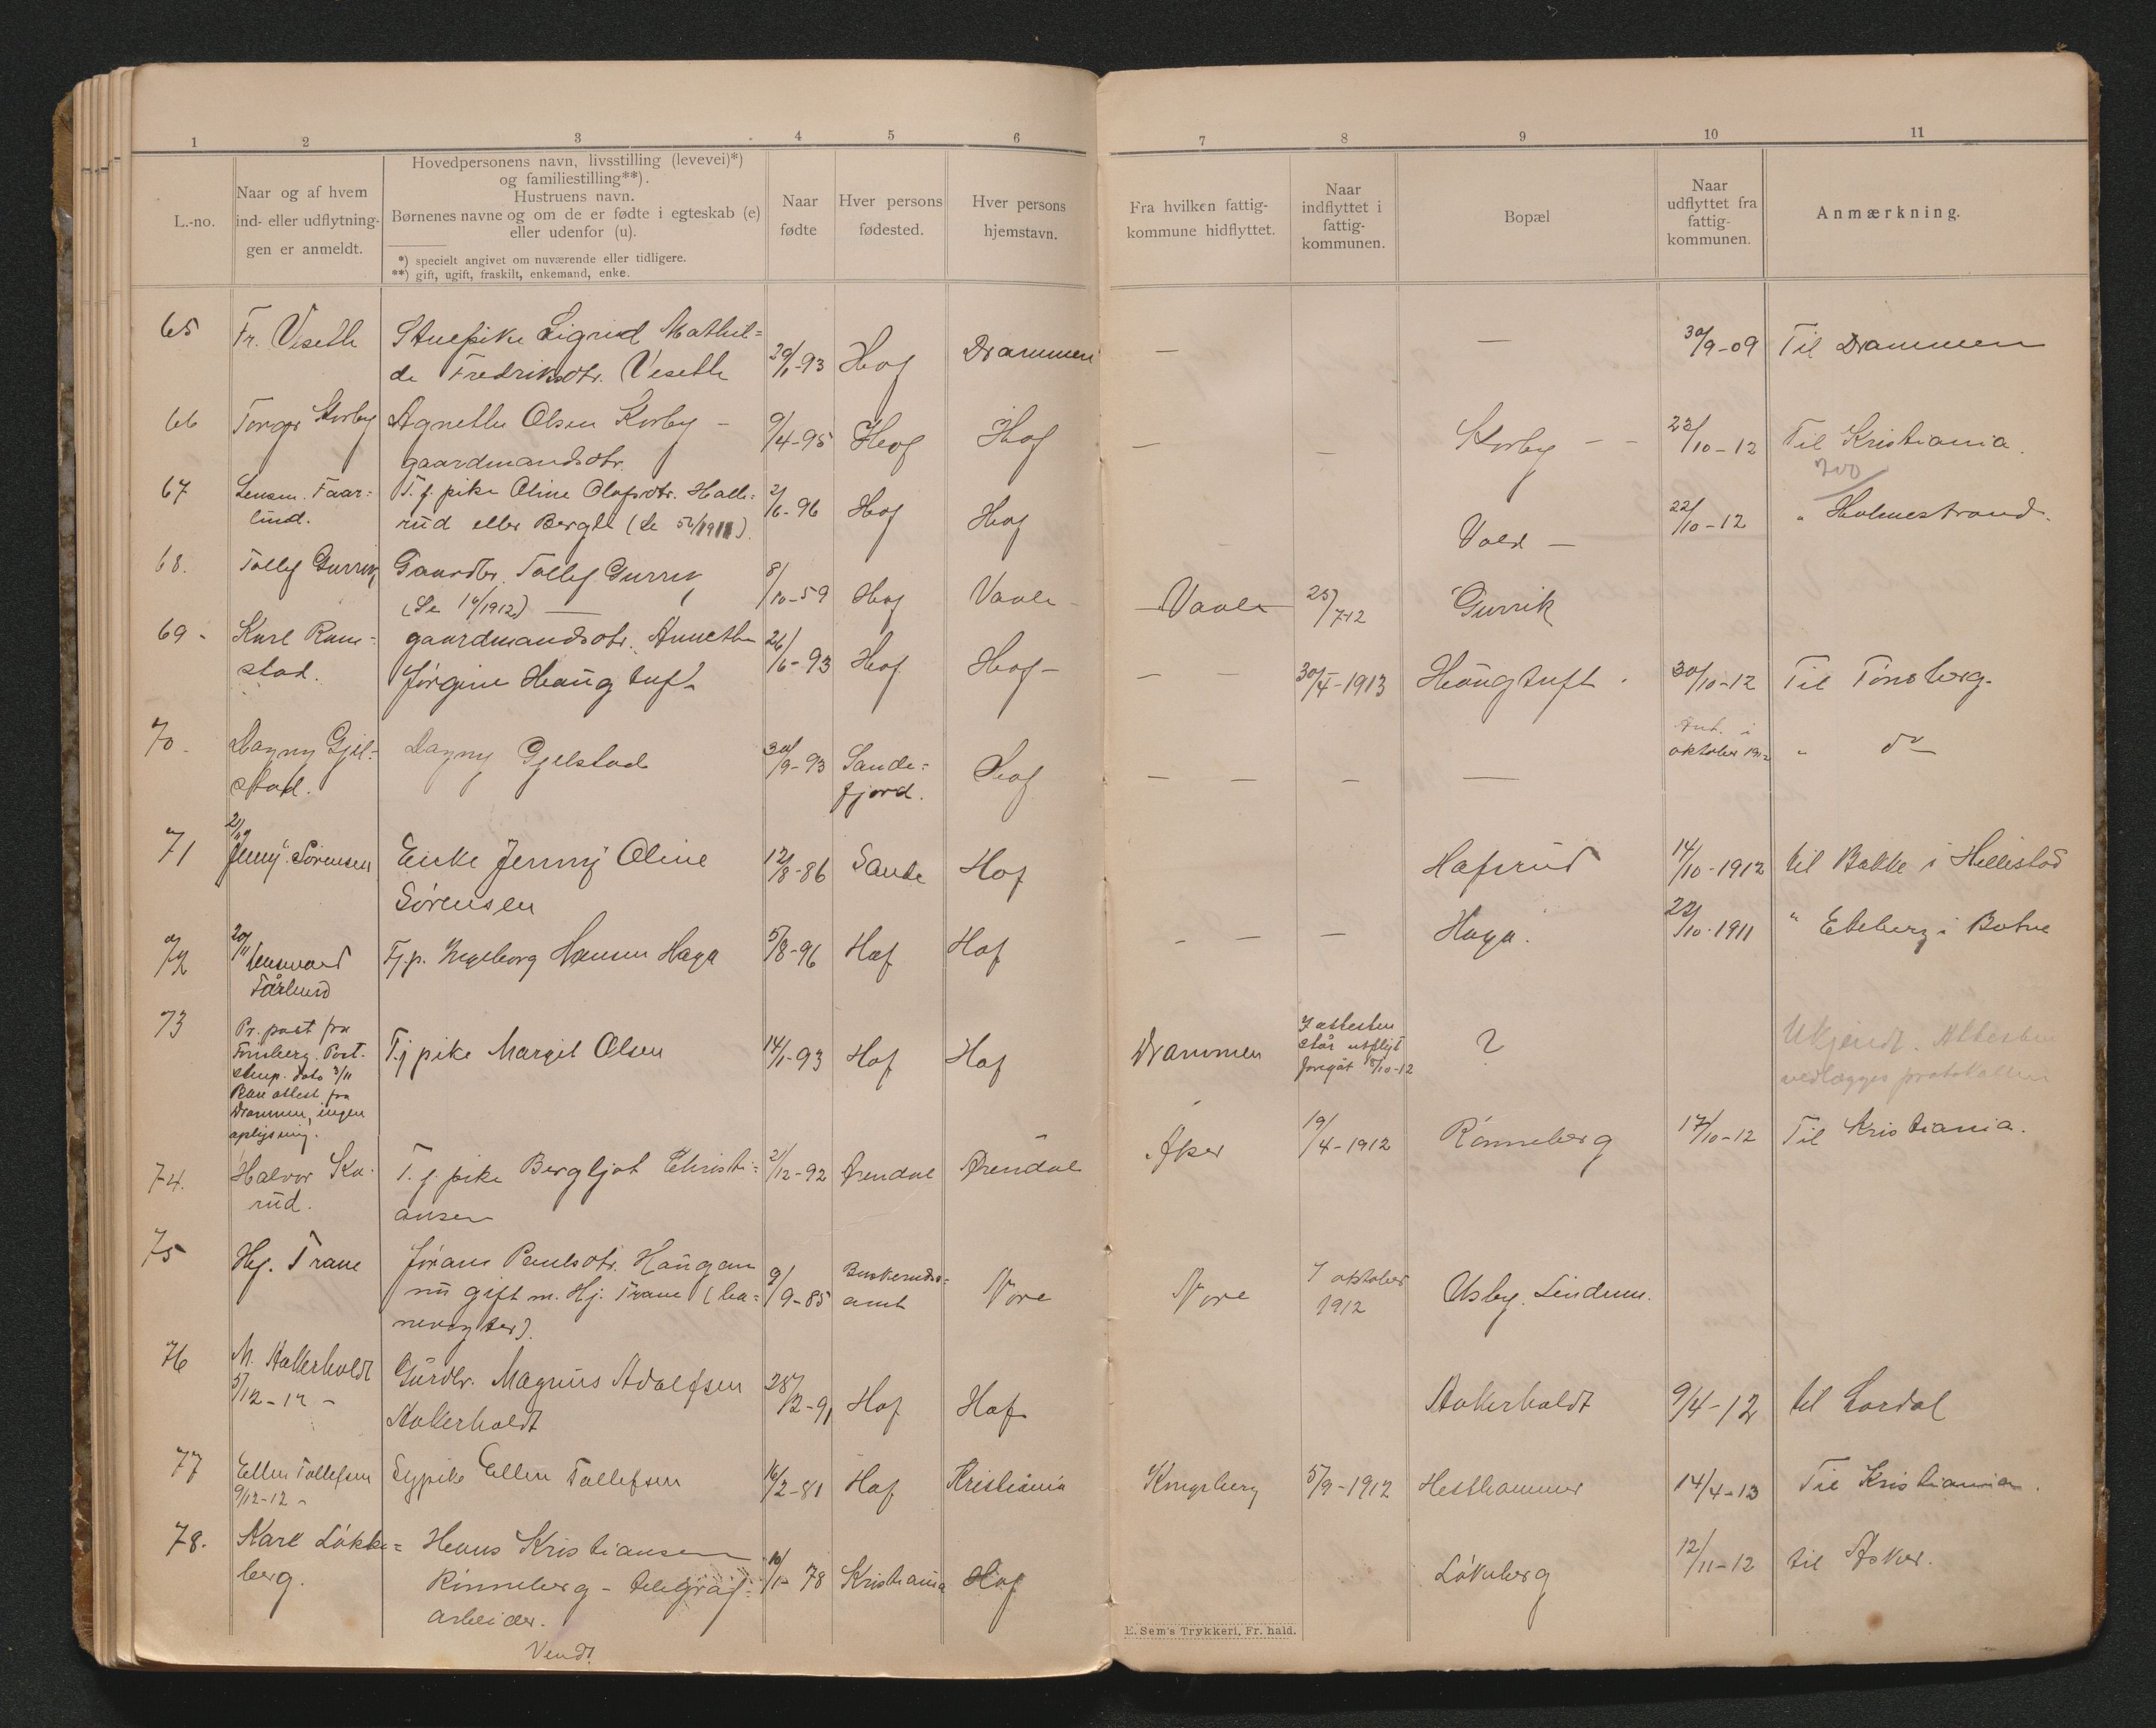 1 2 3 4 5 6 7 8 9 10 11
L.-no.
Naar og af hvem
ind- eller udflytning-
gen er anmeldt.
Hovedpersonens navn, livsstilling (levevei)*)
og familiestilling**).
Hustruens navn.
Børnenes navne og om de er fødte i egteskab (e)
eller udenfor (u).
*) specielt angivet om nuværende eller tidligere.
**) gift, ugift, fraskilt, enkemand, enke.
Naar
fødte
Hver persons
fødested.
Hver persons
hjemstavn.
Fra hvilken fattig-
kommune hidflyttet.
Naar
indflyttet i
fattig-
kommunen.
Bopæl
Naar
udflyttet fra
fattig-
kommunen.
Anmærkning.
65 Fr. Veseth Stuepike Sigrid Mathil= 29/1-93 Hof Drammen — — 30/9-09 Til Drammen
de Fredriksdtr. Veseth
66 Torger Korby Agnethe Olsen Korby – 9/4-95 Hof Hof — – Korby – – 23/10-12 Til Kristiania.
gaardmandsdtr.
700
67 Lensm. Faar= T.j. pike Oline Olafsdtr. Halle= 2/6-96 Hof Hof Vold – 22/10-12 " Holmestrand.
lund. rud eller Bergli (Se 52/1911).
68. Tollef Gurrik Gaardbr. Tollef Gurrik 8/10-59 Hof Vaale – Vaale 25/7-12 Gurrik
(Se 10/1912) —
69 - Karl Ram= gaardmandsdtr. Annethe 26/6-93 Hof Hof – – – 30/4-1913 Haugtuft . 30/10-12 Til Tønsberg.
stad. Jørgine Haugtuft
70. Dagny Gjel= Dagny Gjelstad 30/9-93 Sande= Hof – – – — Ant. i
oktober 1912 " do
stad. fjord.
71 2/11 Jenny Sørensen Enke Jenny Oline 12/8-86 Sande Hof Hafsrud 14/10-1912 til Bakke i Hillestad
Sørensen
72 20/11 Lensmand Tj.p. Ingeborg Hansen Haga 5/8-96 Hof Hof – – – Haga. 22/10-1911 " Ekeberg i Botne
Fårlund
73 Pr. post fra
Tønsberg. Post-
stemp. dato 3/11
Bare attest fra
Drammen, ingen
oplysning.
Tj pike Margit Olsen 14/1-93 Hof Hof Drammen
I attesten
står utflyt
foregåt 15/10-12
?
Ukjendt. Attesten
vedlægges protokollen
74. Halvor Ka= T.j. pike Bergljot Christi= 21/12-92 Arendal Arendal Aker 19/4-1912 Rønneberg 17/10-12 Til Kristiania.
rud. ansen
75 Hj. Trane Jøran Paulsdtr. Haugan 9/9-85 Buskeruds= Nore Nore 1 oktober Usby. Lindum.
nu gift m. Hj. Trane (ba= amt 1912
nevogter).
76 M. Aakerholdt Gårdbr. Magnus Adolfsen 28/12-91 Hof Hof Aakerholdt 9/4-12 til Lardal
5/12-12 – Aakerholdt
77 Ellen Tollefsen Sypike Ellen Tollefsen 16/2-81 Hof Kristiania Kongsberg 5/9-1912 Hesthammer 14/4-13 Til Kristiania.
9/12-12 –
78. Karl Løkke= Hans Kristiansen 10/1-78 Kristiania Hof Løkeberg 12/11-12 til Asker.
berg. Rønneberg – telegraf=
arbeider.
Vend!
E. Sem's Trykkeri, Fr. hald.